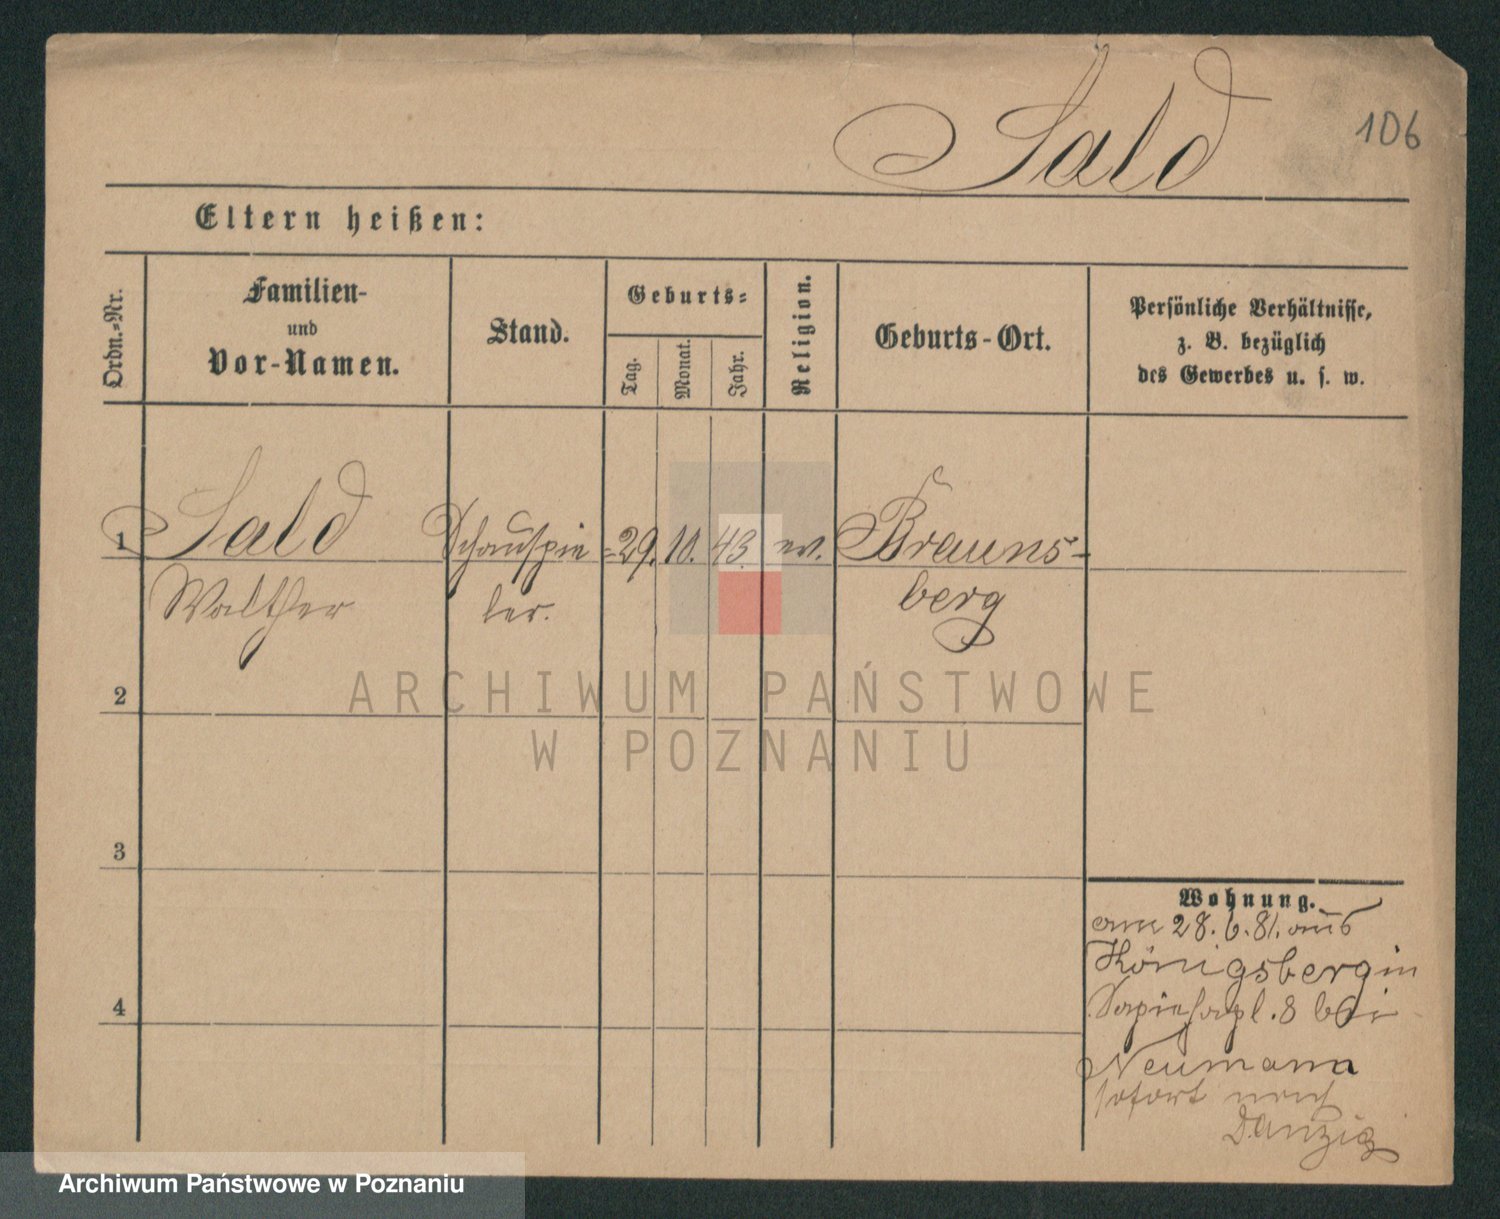 Sald
106
Eltern heißen:
Ordn.-Nr.
Familien-
und
Vor-Namen.
Stand.
Geburts-
Tag.
Monat.
Jahr.
Religion.
Geburts-Ort.
Persönliche Verhältnisse,
z. B. bezüglich
des Gewerbes u. s. w.
1 Sald Schauspie- 29. 10. 43. ev. Brauns-
Walther ler. berg
2
3
4
Wohnung.
am 28. 6. 81. aus
Königsberg in
Sapiehapl. 8 bei
Neumann
sofort nach
Danzig
ARCHIWUM PAŃSTWOWE
W POZNANIU
Archiwum Państwowe w Poznaniu